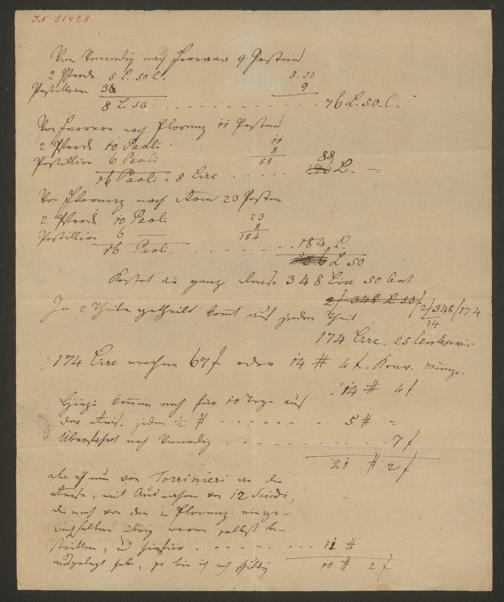 IN 81428
Von Venedig nach Ferrara 9 Posten
2 Pferde 5 L. 50 C. 8.50
Postillion 3 9
8 L. 50 76 L. 50. C.
Von Ferrara nach Florenz 11 Posten
2 Pferde 10 Paoli 11
Postillion 6 Paoli 8
16 Paoli = 8 Lire 88 88 L. —
Von Florenz nach Rom 23 Posten
2 Pferde 10 Paoli 23
Postillion 6 — 8
16 Paoli. 184 184 L.
L 50
Kostet die ganze Reise 348 Lire 50 Cent.
2/ 348 L 50/ 2/348/174
In 2 Theile getheilt kommt auf jeden Theil 14
174 Lire. 25 Centesimi
174 Lire machen 67 f oder 14 # 4 f. Konv. Münze.
14 # 4 f.
Hiezu kommen noch für 10 Tage auf
der Reise, jeden ½ # 5 # "
Überfahrt nach Venedig 7 f
21 # 2 f
da ich nun von Torrinieri an die
Reise, mit Ausnahme von 12 Scudi,
die noch von den in Florenz
übrig waren selbst
und hiefür 11 #
ausgelegt habe, so bin ich noch schuldig 10 # 2 f